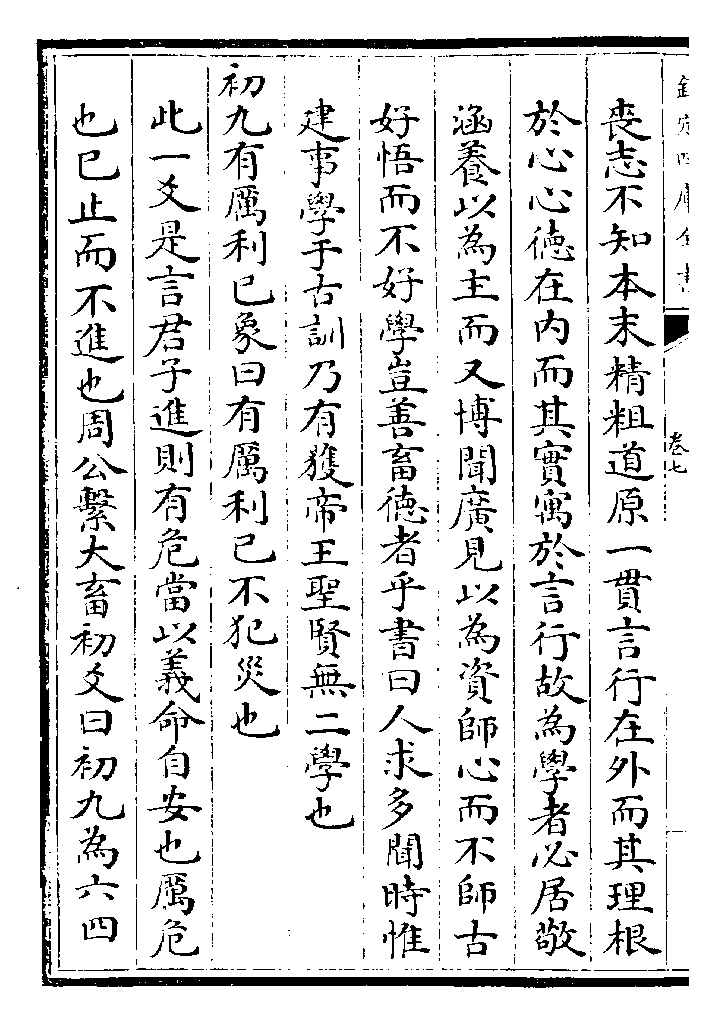 欽定四庫全書
卷七
喪志不知本末精粗道原一貫言行在外而其理根
於心心德在内而其實寓於言行故為學者必居敬
涵養以為主而又博聞廣見以為資師心而不師古
好悟而不好學豈善畜德者乎書曰人求多聞時惟
建事學于古訓乃有獲帝王聖賢無二學也
初九有厲利已象曰有厲利已不犯災也
此一爻是言君子進則有危當以義命自安也厲危
也已止而不進也周公繫大畜初爻曰初九為六四